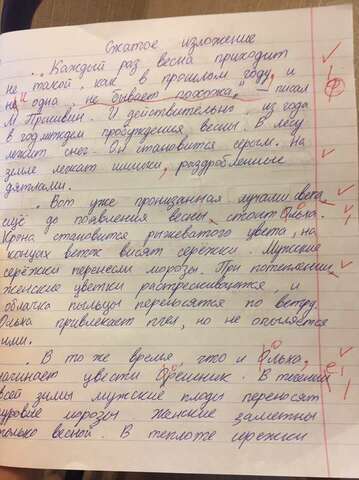 Сжатое изложение
„Каждый раз весна приходит
не такой, как в прошлом году, и
ни одна, не бывает похожа," - писал
М. Пришвин. И действительно, из года
в год ждем пробуждения весны. В лесу
лежит снег. Он становится серым. На
земле лежат шишки, раздробленные
дятлами.
Вот уже пронизанная лучами света
ещё до появления весны, стоит Ольха.
Крона становится рыжеватого цвета, на
концах веток висят серёжки. Мужские
серёжки перенесли морозы. При потеплении
женские цветки растрескиваются, и
облачка пыльцы переносятся по ветру.
Ольха привлекает пчел, но не опыляется
ими.
В то же время, что и Ольха,
начинает цвести Орешник. В течении
всей зимы мужские плоды переносят
суровые морозы женские заметны
только весной. В теплоте сережки